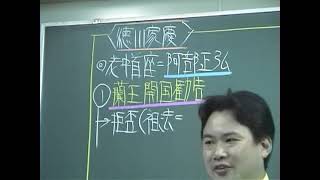 徳川家慶
◎老中首座=阿部正弘
①蘭王開国勧告
→拒否(祖法=